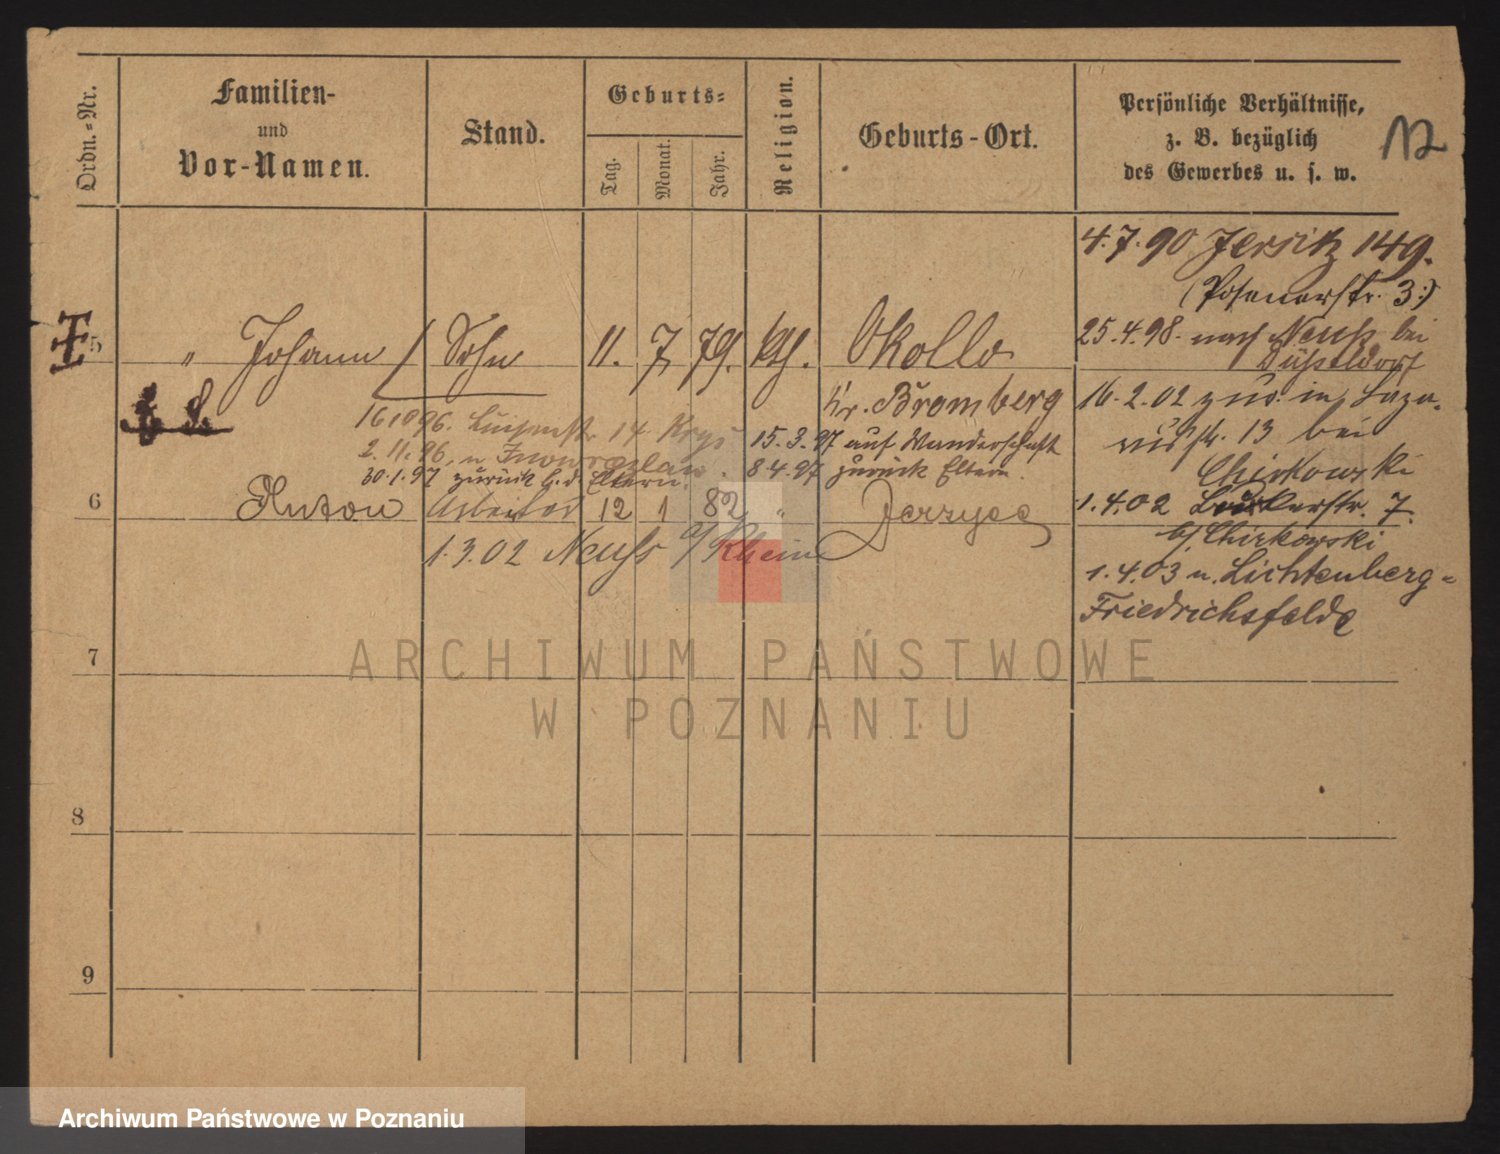 Ordn.-Nr.
Familien-
und
Vor-Namen.
Stand.
Geburts-
Tag.
Monat.
Jahr.
Religion.
Geburts-Ort.
Persönliche Verhältnisse,
z. B. bezüglich
des Gewerbes u. s. w.
12
4.7.90 Jersitz 149.
(Posenerstr. 3.)
5 " Johann Sohn 11. 7 79. kth. Okollo
Kr. Bromberg
25.4.98. nach Neuß bei
Düsseldorf
16.2.02 zus. in Laza-
russtr. 13 bei
Chirkowski
16 10 96. Luisenstr 14 Krys
2.11.96. n Inowrazlaw.
30.1.97 zurück b. d. Eltern.
15.3.97 auf Wanderschaft
8.4.97 zurück Eltern.
6 Anton Arbeiter 12 1 82 " Jerzyce
1.3.02 Neuss a/Rhein
1.4.02 7.
b/ Chirkowski
1.4.03 n. Lichtenberg-
Friedrichsfelde
7
8
9
ARCHIWUM PAŃSTWOWE
W POZNANIU
Archiwum Państwowe w Poznaniu